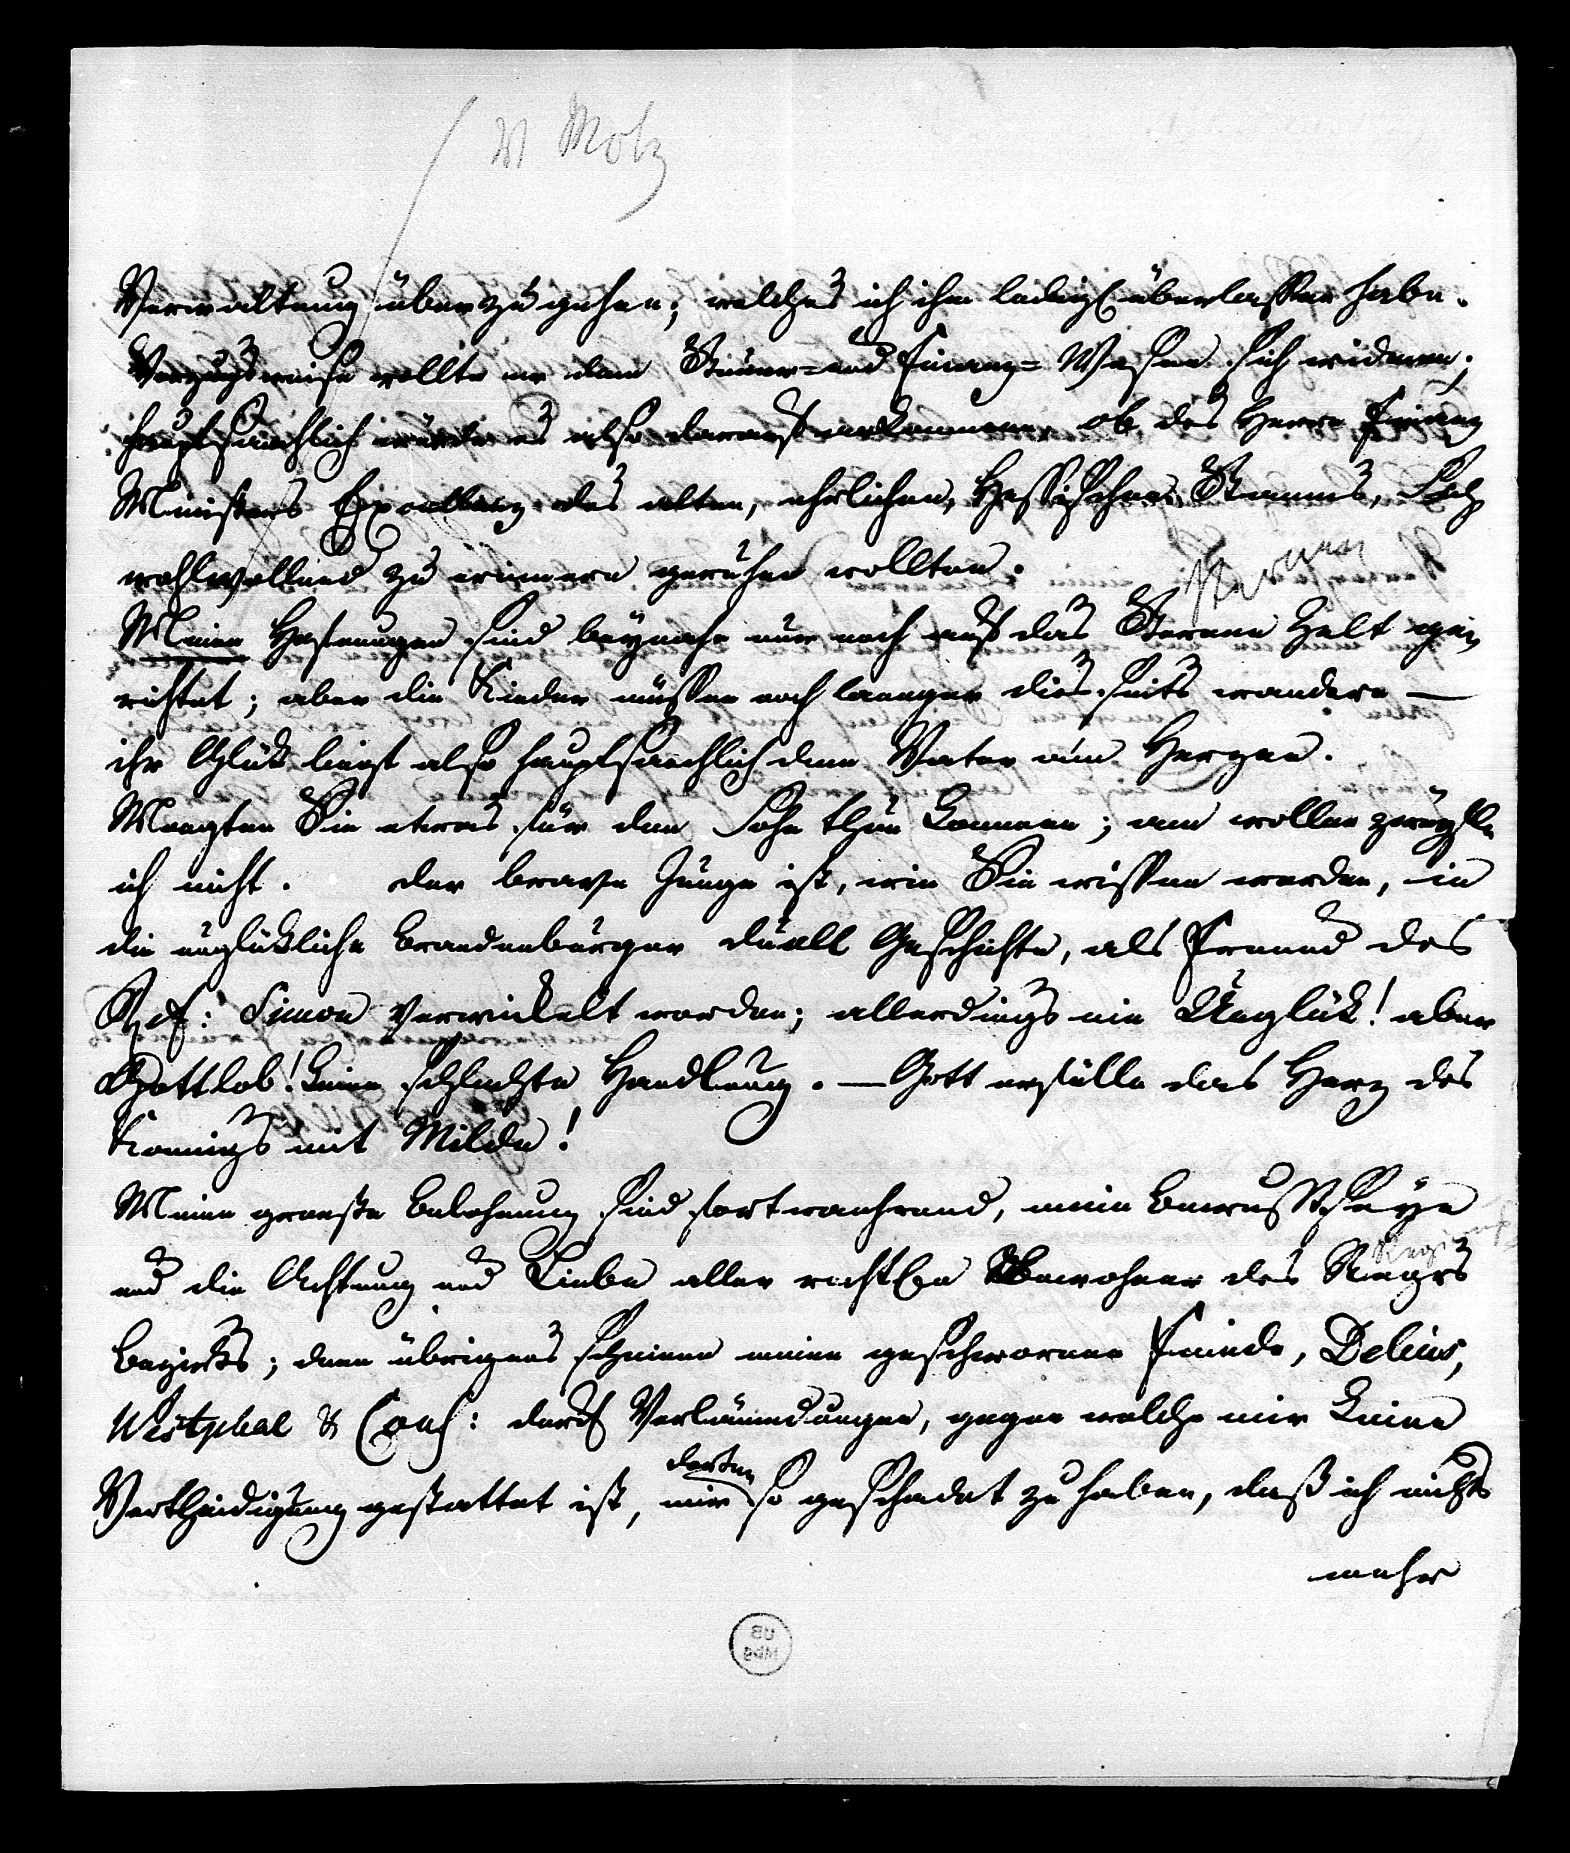 v Motz
Verwaltung überzugehen; welches ich ihm ledigl überlassen habe.
Vorzugsweise wollte er dem Steuer- und Finanz-Wesen sich widmen;
hauptsaechlich würde es also darauf ankommen, ob des Herrn Finanz
Ministers Excellenz des alten, ehrlichen, Hessischen Stamms, Sich
wohlwollend zu erinnern geruhen wollten.
Meine Hofnungen sind beynahe nur noch auf das Sternen Zelt ge-
Sternen
richtet; aber die Kinder müssen noch laenger dies-seits wandern —
ihr Glük liegt also hauptsaechlich dem Vater am Herzen.
Moegten Sie etwas für den Sohn thun koennen; am wollen zweifle
ich nicht. der brave Junge ist, wie Sie wissen werden, in
die unglükliche Brandenburger duell Geschichte, als Freund des
Ref: Simon verwickelt worden; allerdings ein Unglük! aber
Gottlob! keine schlechte Handlung. — Gott erfülle das Herz des
Koenigs mit Milde!
Meine groeste Belohnung sind fortwaehrend, mein Bewustseyn
und die Achtung und Liebe aller rechtl. Bewohner des Regrs
Regierungs
Bezirks; denn übrigens scheinen meine geschwornen Feinde, Delius,
Westphal & Cons: durch Verläumdungen, gegen welche mir keine
dorten
Vertheidigung gestattet ist, mir so geschadet zu haben, daß ich nichts
mehr
UB
Mbg